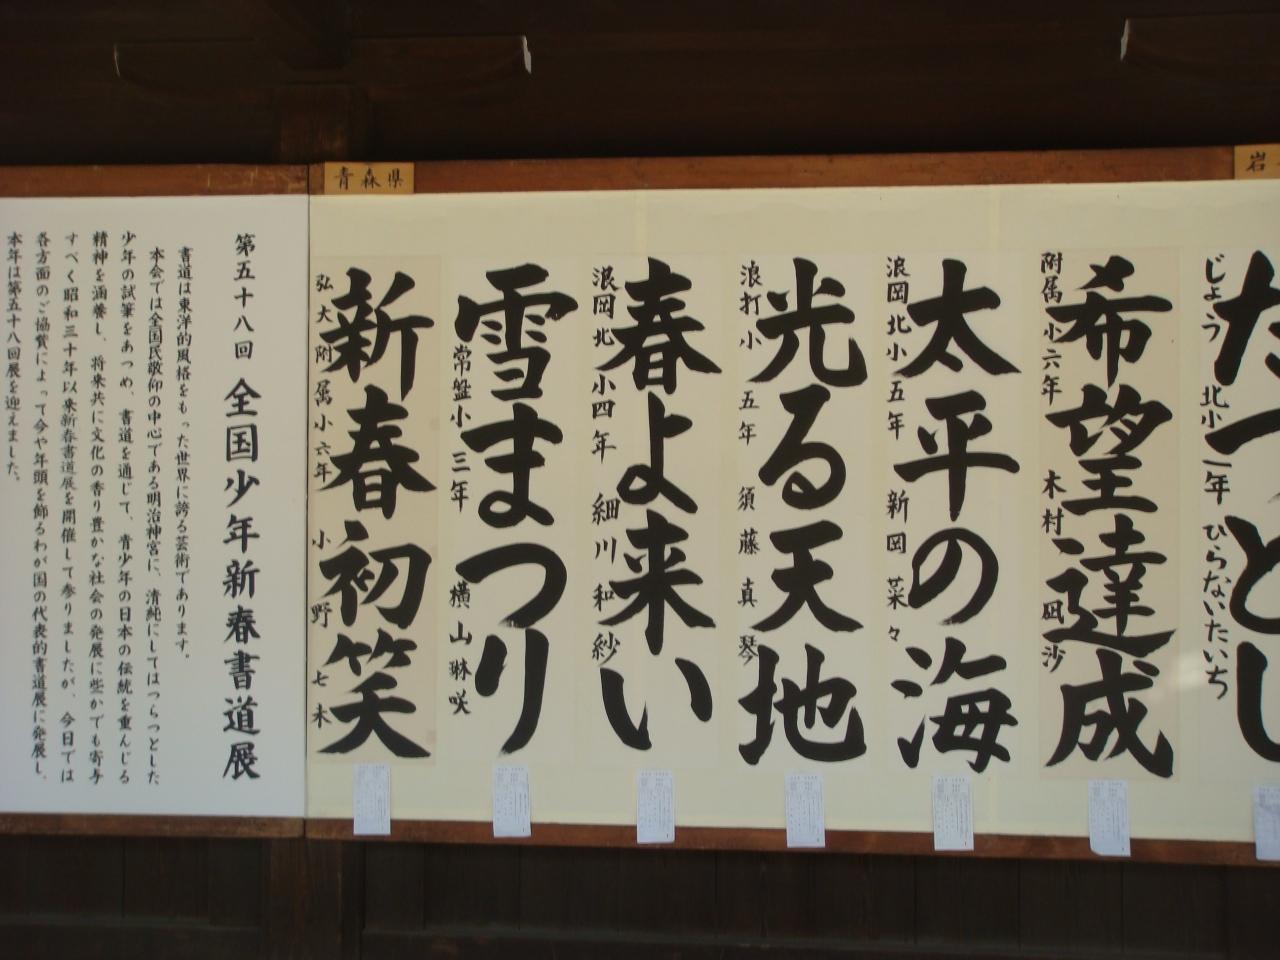 第五十八回 全国少年新春書道展
書道は東洋的風格をもった世界に誇る芸術であります。
本会では全国民敬仰の中心である明治神宮に、清純にしてはつらつとした
少年の試筆をあつめ、書道を通じて、青少年の日本の伝統を重んじる
精神を涵養し、将来共に文化の香り豊かな社会の発展に些かでも寄与
すべく昭和三十年以来新春書道展を開催して参りましたが、今日では
各方面のご協賛によって今や年頭を飾るわが国の代表的書道展に発展し、
本年は第五十八回展を迎えました。
青森県
新春初笑
弘大附属小六年 小野七未
雪まつり
常盤小三年 横山琳咲
春よ来い
浪岡北小四年 細川和紗
光る天地
浪打小五年 須藤真琴
太平の海
浪岡北小五年 新岡菜々
希望達成
附属小六年 木村凪沙
たつとし
じょう北小一年 ひらないたいち
岩